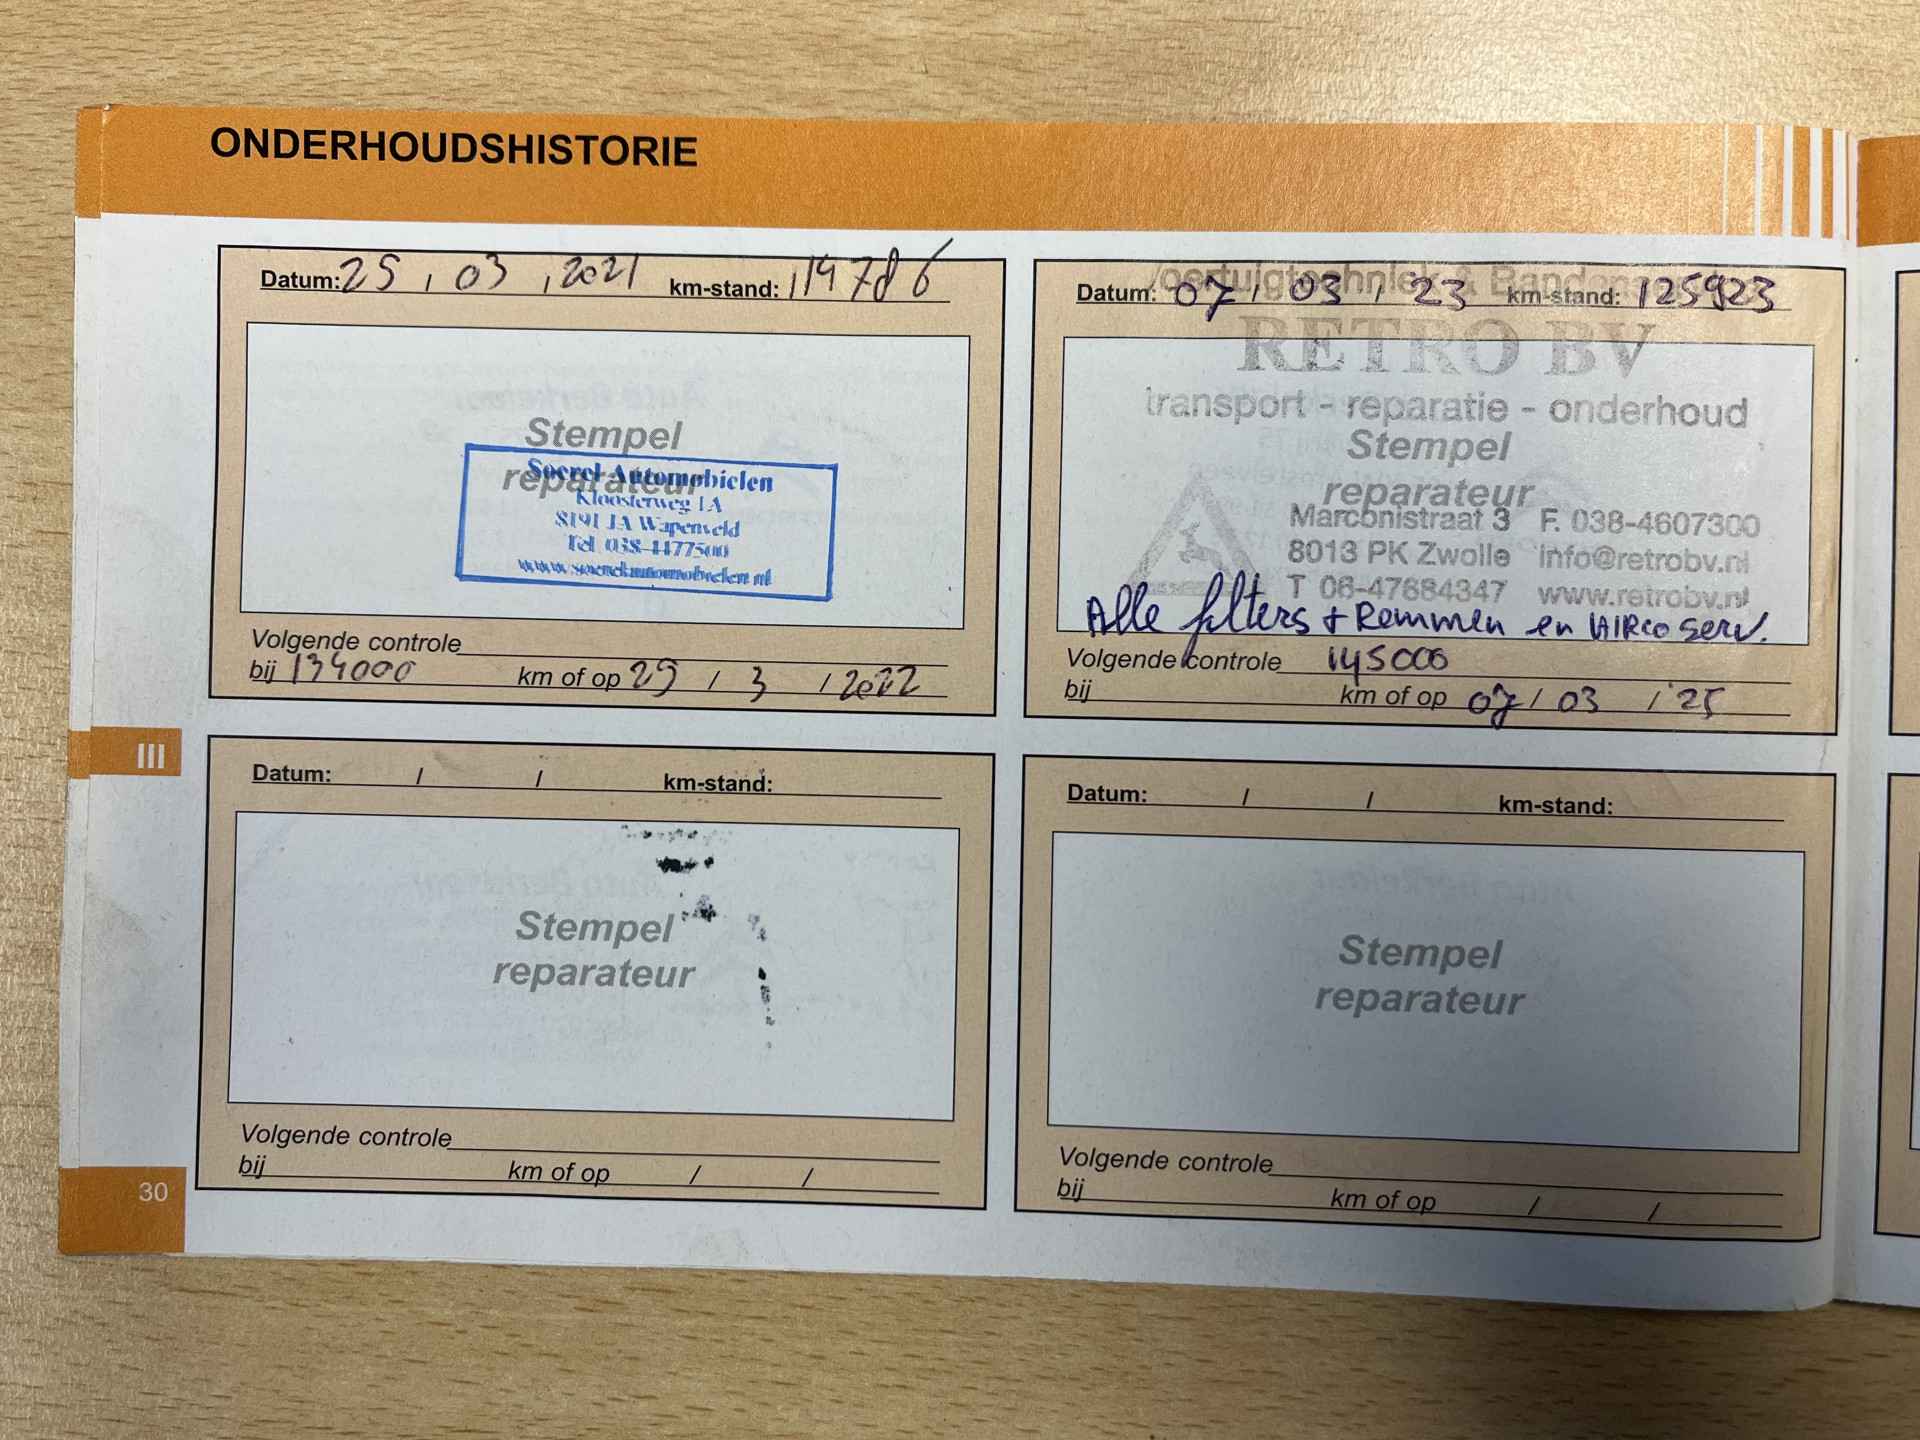 ONDERHOUDSHISTORIE
Datum: 25 / 03 / 2021 km-stand: 119786
Stempel
reparateur
Soerel Automobielen
Kloosterweg 1A
8191 JA Wapenveld
Tel. 038-4477500
www.soerelautomobielen.nl
Volgende controle
bij 134000 km of op 25 / 3 / 2022
Voertuigtechniek & Banden
Datum: 07 / 03 / 23 km-stand: 125923
RETRO BV
transport - reparatie - onderhoud
Stempel
reparateur
Marconistraat 3 F. 038-4607300
8013 PK Zwolle info@retrobv.nl
T 06-47684347 www.retrobv.nl
Alle filters + Remmen en AIRco serv.
Volgende controle 145000
bij km of op 07 / 03 / 25
III
Datum: / / km-stand:
Stempel
reparateur
Volgende controle
bij km of op / /
Datum: / / km-stand:
Stempel
reparateur
Volgende controle
bij km of op / /
30